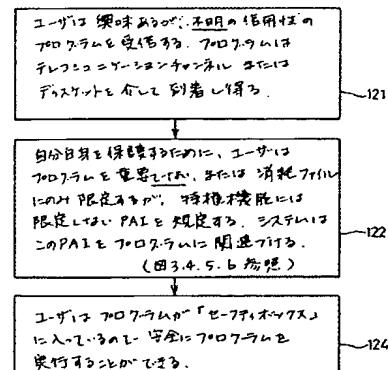 ユーザは興味あるが、不明の信用性の
プログラムを受信する. プログラムは
テレコミュニケーションチャンネル または
ディスケットを介して到着し得る.
121
自分自身を保護するために、ユーザは
プログラムを重要でない, または 消耗ファイル
にのみ限定するが, 特権機能には
限定しない PAIを規定する. システムは
このPAIをプログラムに関連づける.
(図3.4.5.6 参照)
122
ユーザはプログラムが「セーフティボックス」
に入っているので 安全にプログラムを
実行することができる.
124